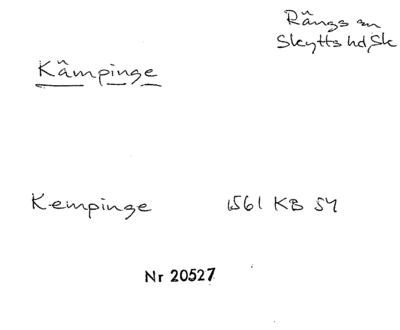 Rängs sn
Skytts hd, Sk
Kämpinge
Kempinge 1561 KB 54
Nr 20527